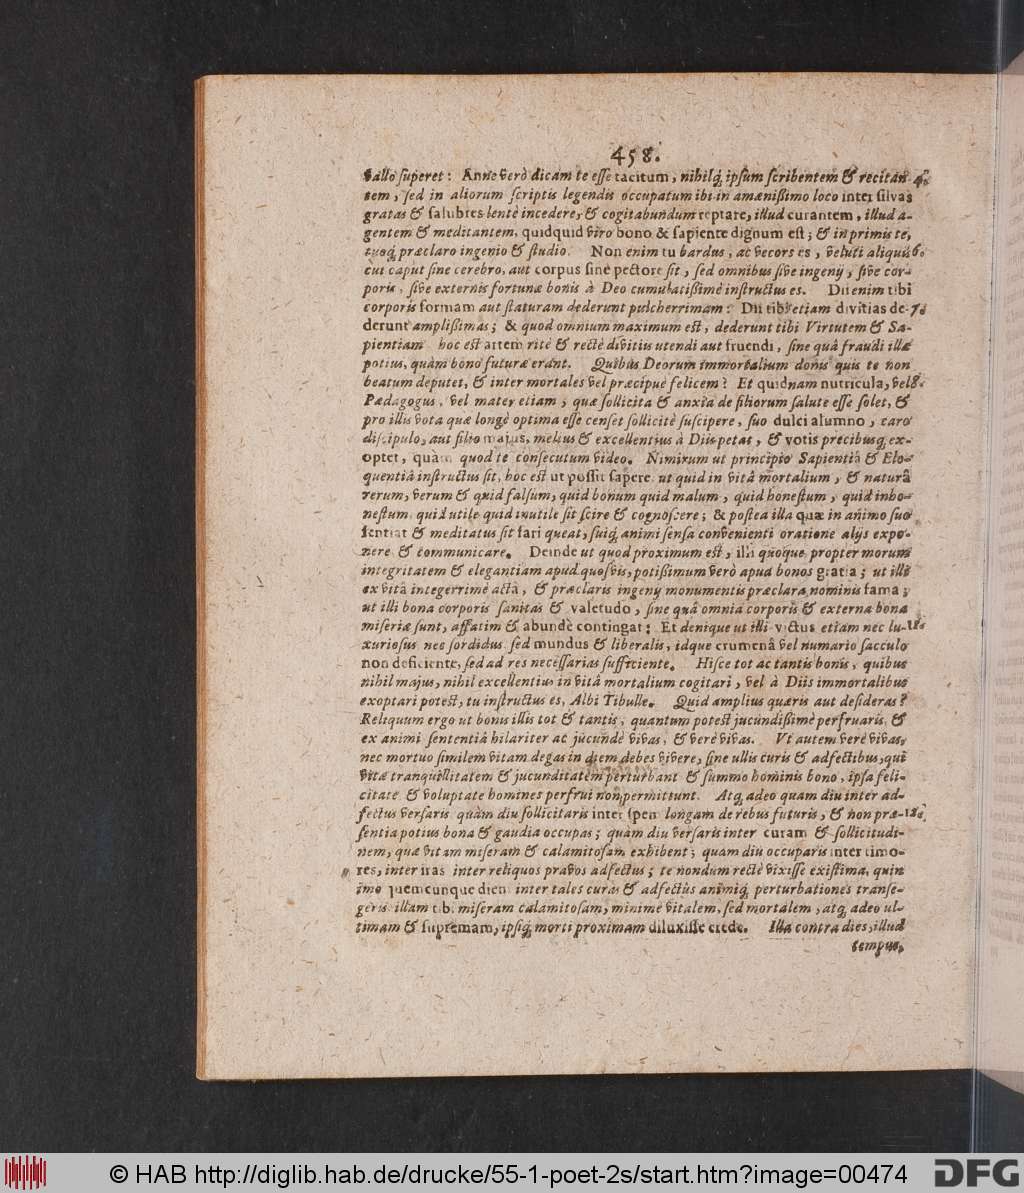 458.
vallo superet: Anne verò dicam te esse tacitum, nihilq; ipsum scribentem & recitan- 4.
tem, sed in aliorum scriptis legendis occupatum ibi in amœnißimo loco inter silvas
gratas & salubres lentè incedere, & cogitabundum reptare, illud curantem, illud a-
gentem & meditantem, quidquid viro bono & sapiente dignum est; & inprimis te,
tuoq; præclaro ingenio & studio. Non enim tu bardus, ac vecors es, veluti aliquis 6.
cui caput sine cerebro, aut corpus sine pectore sit, sed omnibus sive ingenij, sive cor-
poris, sive externis fortunæ bonis à Deo cumulatißimè instructus es. Dii enim tibi
corporis formam aut staturam dederunt pulcherrimam: Dii tibi etiam divitias de- 7.
derunt amplißimas; & quod omnium maximum est, dederunt tibi Virtutem & Sa-
pientiam hoc est artem ritè & rectè divitiis utendi aut fruendi, sine quâ fraudi illæ
potius, quàm bono futuræ erant. Quibus Deorum immortalium donis quis te non
beatum deputet, & inter mortales vel præcipuè felicem? Et quidnam nutricula, vel 8.
Pædagogus, vel mater etiam, quæ sollicita & anxia de filiorum salute esse solet, &
pro illis vota quæ longè optima esse censet sollicitè suscipere, suo dulci alumno, caro
discipulo, aut filio majus, melius & excellentius à Diis petat, & votis precibusq; ex-
optet, quàm quod te consecutum video. Nimirum ut principio Sapientiâ & Elo-
quentiâ instructus sit, hoc est ut possit sapere ut quid in vitâ mortalium, & naturâ
rerum, verum & quid falsum, quid bonum quid malum, quid honestum, quid inho-
nestum, quid utile quid inutile sit scire & cognoscere; & postea illa quæ in animo suo
sentiat & meditatus sit fari queat, suiq; animi sensa convenienti oratione alijs expo-
nere & communicare. Deinde ut quod proximum est, illi quoque propter morum
integritatem & elegantiam apud quosvis, potißimum verò apud bonos gratia; ut illi
ex vitâ integerrimè actâ, & præclaris ingenij monumentis præclara nominis fama;
ut illi bona corporis sanitas & valetudo, sine quâ omnia corporis & externa bona
miseriæ sunt, affatim & abundè contingat: Et denique ut illi victus etiam nec lu- 11.
xuriosus nec sordidus sed mundus & liberalis, idque crumenâ vel numario sacculo
non deficiente, sed ad res necessarias sufficiente. Hisce tot ac tantis bonis, quibus
nihil majus, nihil excellentius in vitâ mortalium cogitari, vel à Diis immortalibus
exoptari potest, tu instructus es, Albi Tibulle. Quid amplius quæris aut desideras?
Reliquum ergo ut bonis illis tot & tantis, quantum potest jucundißimè perfruaris, &
ex animi sententiâ hilariter ac jucundè vivas, & verè vivas. Vt autem verè vivas,
nec mortuo similem vitam degas in diem debes vivere, sine ullis curis & adfectibus, qui
vitæ tranquillitatem & jucunditatem perturbant & summo hominis bono, ipsa feli-
citate & voluptate homines perfrui non permittunt. Atq; adeo quam diu inter ad-
fectus versaris quàm diu sollicitaris inter spem longam de rebus futuris, & non præ- 12.
sentia potius bona & gaudia occupas; quàm diu versaris inter curam & sollicitudi-
nem, quæ vitam miseram & calamitosam exhibent; quam diu occuparis inter timo-
res, inter iras inter reliquos pravos adfectus; te nondum rectè vixisse existima, quin
imo quemcunque diem inter tales curas & adfectus animiq; perturbationes transe-
geris illam tibi miseram calamitosam, minimè vitalem, sed mortalem, atq; adeo ul-
timam & supremam, ipsiq; morti proximam diluxisse crede. Illa contra dies, illud
tempus,
© HAB http://diglib.hab.de/drucke/55-1-poet-2s/start.htm?image=00474
DFG